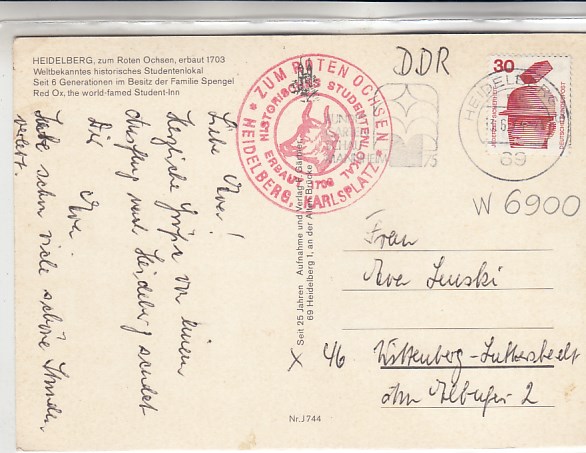 HEIDELBERG, zum Roten Ochsen, erbaut 1703
Weltbekanntes historisches Studentenlokal
Seit 6 Generationen im Besitz der Familie Spengel
Red Ox, the world-famed Student-Inn
ZUM ROTEN OCHSEN
HISTORISCHES STUDENTENLOKAL
ERBAUT 1703
HEIDELBERG, KARLSPLATZ
DDR
MANNHEIM
75
30
DEUTSCHE BUNDESPOST
HEIDELBERG
69
W 6900
Liebe Eva!
Herzliche Grüße von einem
Ausflug nach Heidelberg sendet
Dir Eva.
Habe schon viele schöne Stunden
verlebt.
Seit 25 Jahren Aufnahme und Verlag
69 Heidelberg 1, an der Alten Brücke
Frau
Eva
x 46 Wittenberg-Lutherstadt
2
Nr. J 744